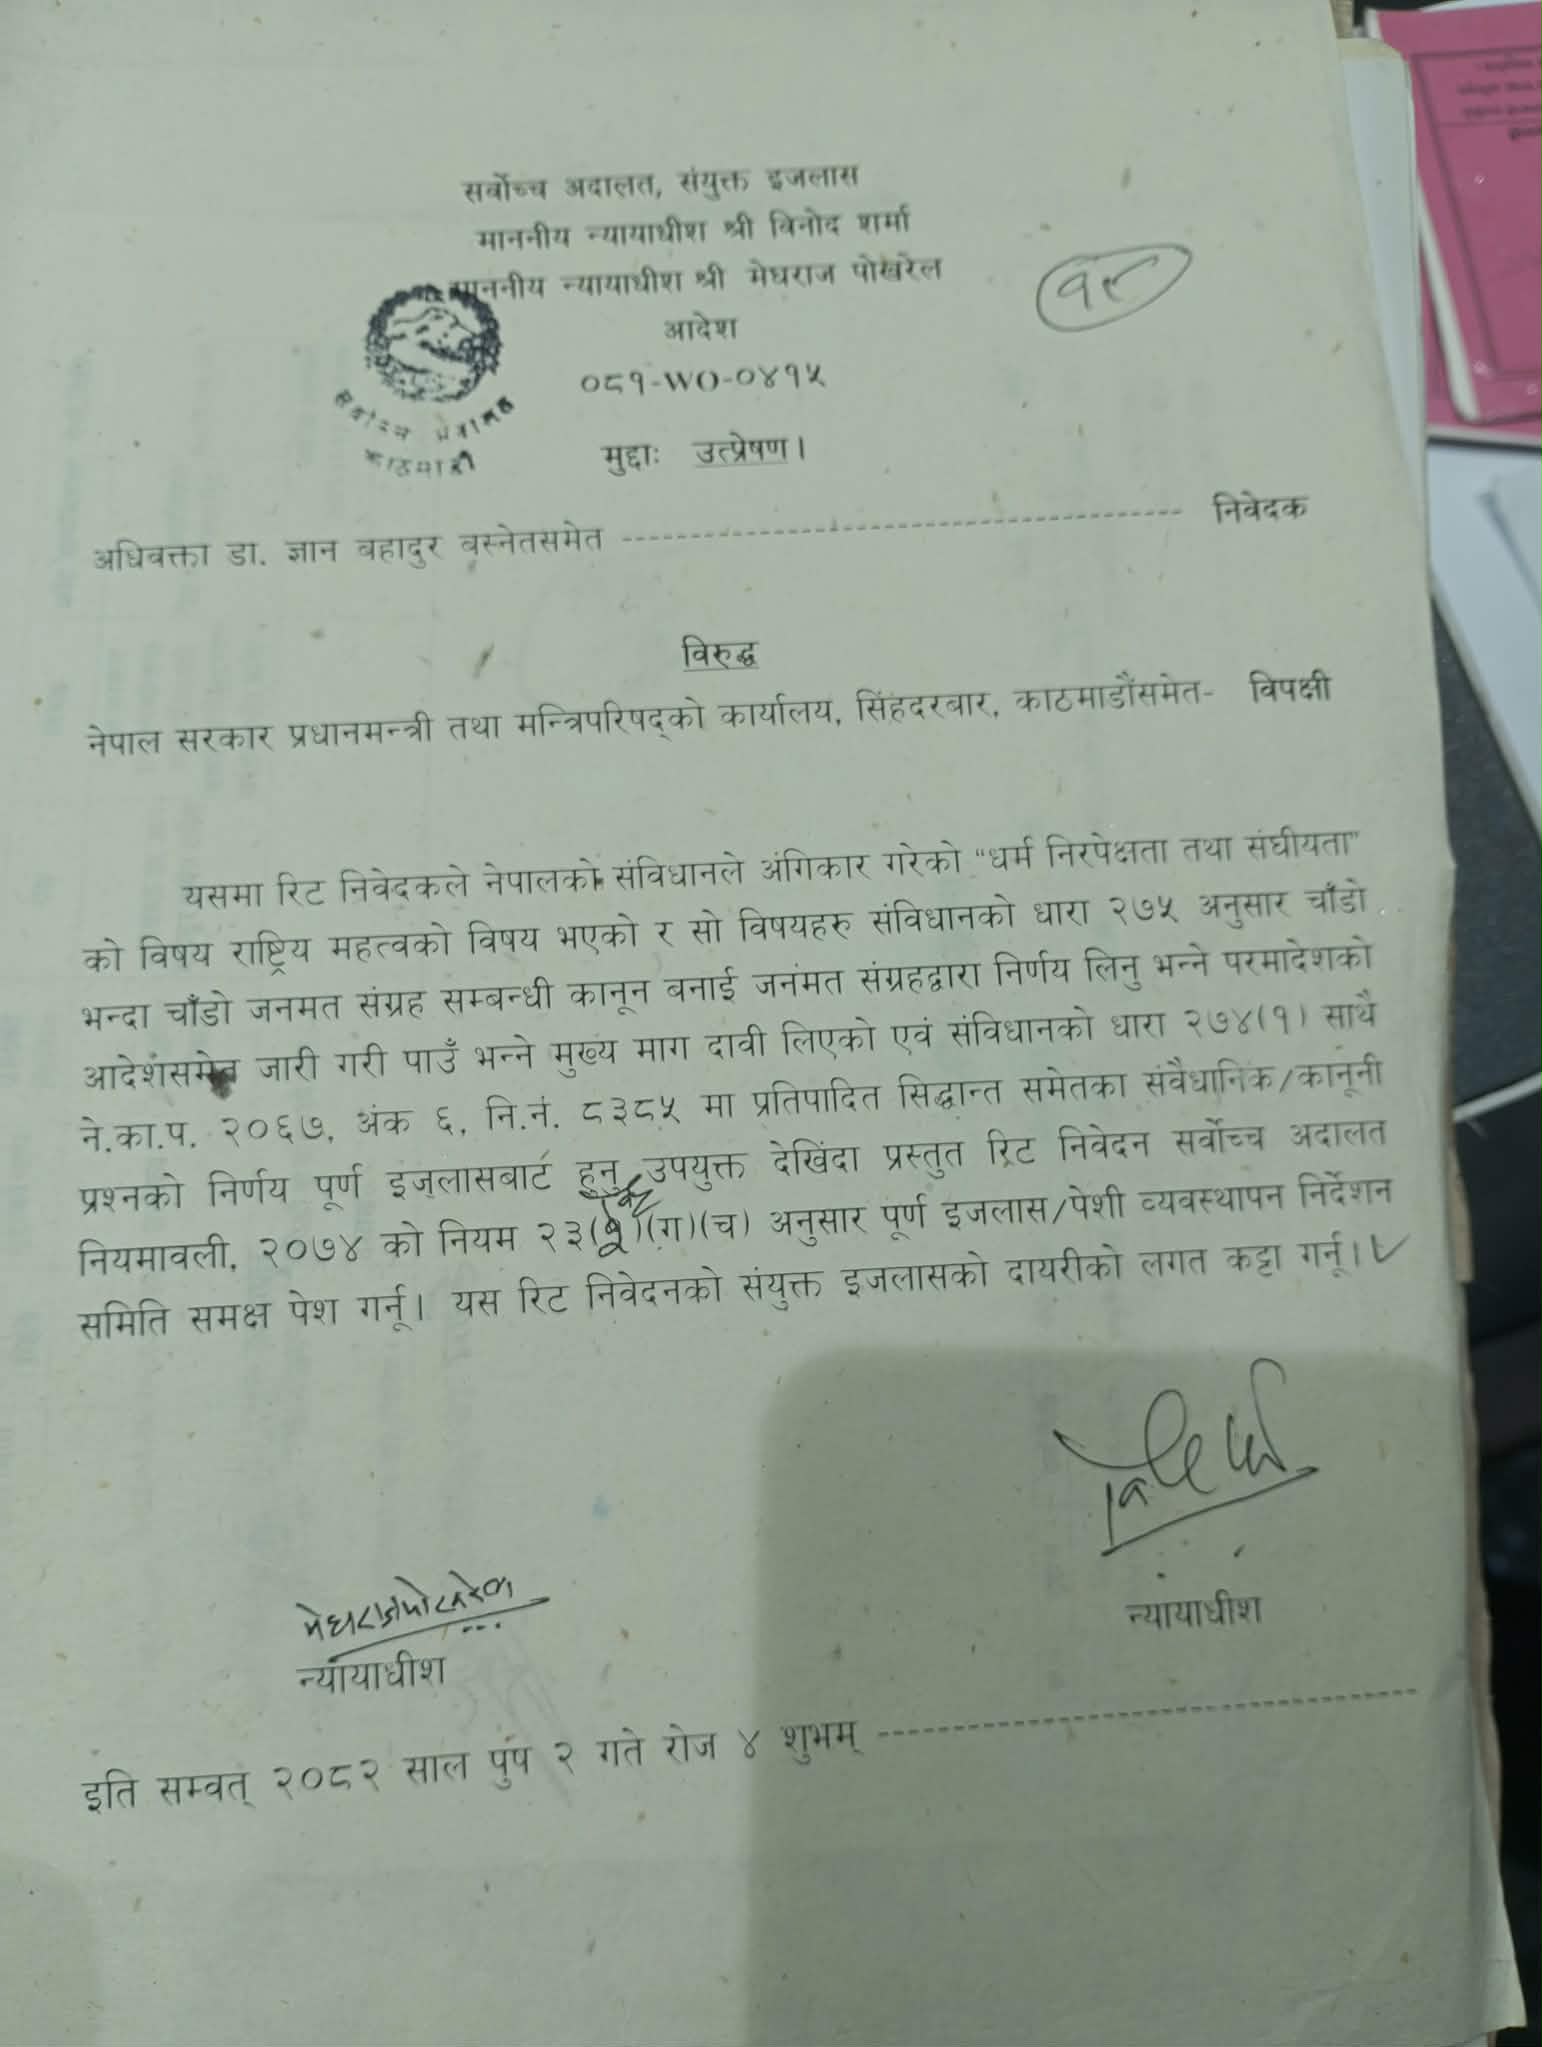 सर्वोच्च अदालत, संयुक्त इजलास
माननीय न्यायाधीश श्री विनोद शर्मा
माननीय न्यायाधीश श्री मेघराज पोखरेल
आदेश
०८१-WO-०४१५
मुद्दाः उत्प्रेषण।
सर्वोच्च अदालत
काठमाडौं
अधिवक्ता डा. ज्ञान बहादुर बस्नेतसमेत ------------------------------------------ निवेदक
विरुद्ध
नेपाल सरकार प्रधानमन्त्री तथा मन्त्रिपरिषद्को कार्यालय, सिंहदरबार, काठमाडौंसमेत- विपक्षी
यसमा रिट निवेदकले नेपालको संविधानले अंगिकार गरेको "धर्म निरपेक्षता तथा संघीयता"
को विषय राष्ट्रिय महत्वको विषय भएको र सो विषयहरु संविधानको धारा २७५ अनुसार चाँडो
भन्दा चाँडो जनमत संग्रह सम्बन्धी कानून बनाई जनमत संग्रहद्वारा निर्णय लिनु भन्ने परमादेशको
आदेशसमेत जारी गरी पाउँ भन्ने मुख्य माग दावी लिएको एवं संविधानको धारा २७४(१) साथै
ने.का.प. २०६७, अंक ६, नि.नं. ८३८५ मा प्रतिपादित सिद्धान्त समेतका संवैधानिक/कानूनी
प्रश्नको निर्णय पूर्ण इजलासबाट हुनु उपयुक्त देखिंदा प्रस्तुत रिट निवेदन सर्वोच्च अदालत
नियमावली, २०७४ को नियम २३ (ग)(च) अनुसार पूर्ण इजलास/पेशी व्यवस्थापन निर्देशन
समिति समक्ष पेश गर्नू। यस रिट निवेदनको संयुक्त इजलासको दायरीको लगत कट्टा गर्नू।
मेघराज पोखरेल
न्यायाधीश
न्यायाधीश
इति सम्वत् २०८२ साल पुष २ गते रोज ४ शुभम् ------------------------------------------